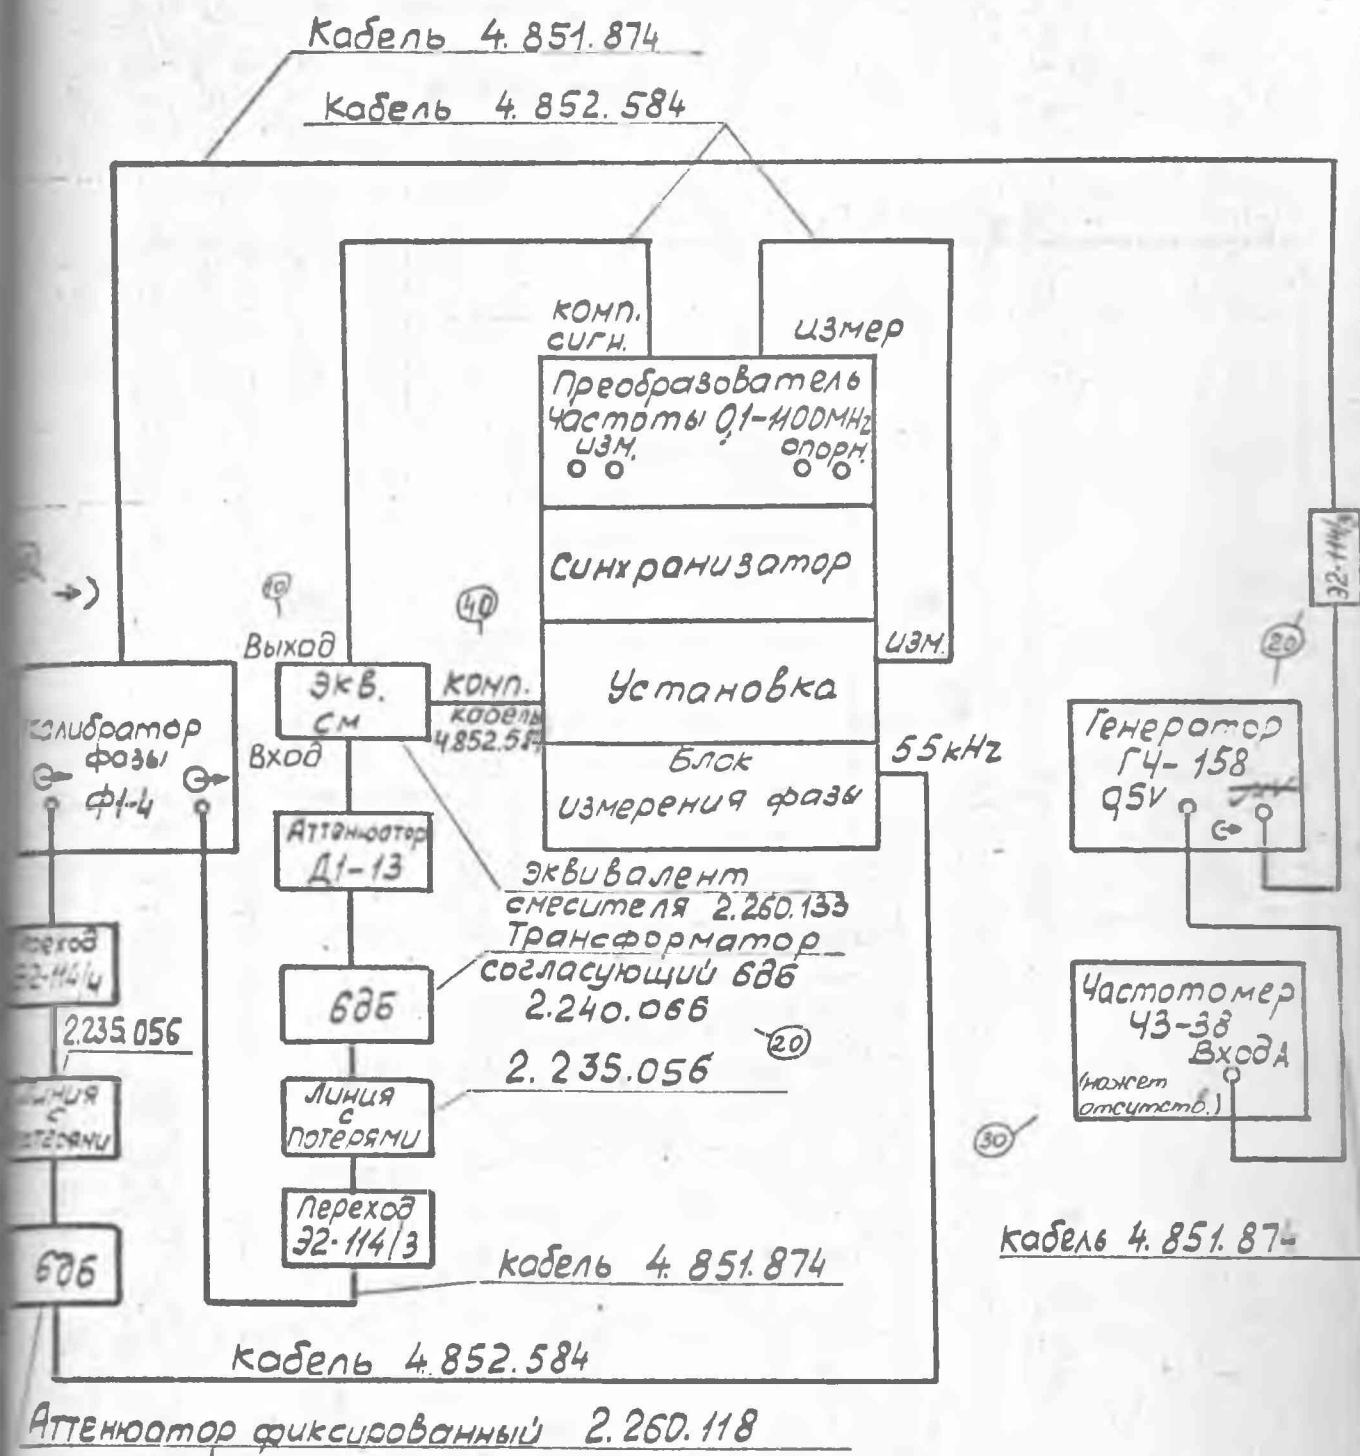 Кабель 4.851.874
Кабель 4.852.584
комп.
сигн.
измер
Преобразователь
частоты 0,1-1100MHz
изм.
опорн.
Синхранизатор
Установка
изм.
Блок
измерения фазы
55kHz
10
40
Выход
ЭКВ.
СМ
Вход
комп.
кабель
4.852.584
Калибратор
фазы
Ф1-4
Аттенюатор
Д1-13
эквивалент
смесителя 2.260.133
Трансформатор
согласующий 6дб
2.240.066
20
6дб
2.235.056
Линия
с
потерями
Переход
Э2-114/3
кабель 4.851.874
Переход
Э2-114/4
2.235.056
Линия
с
потерями
6дб
кабель 4.852.584
Аттенюатор фиксированный 2.260.118
20
Генератор
Г4-158
0,5V
Частотомер
Ч3-38
Вход А
(может
отсутств.)
30
кабель 4.851.874